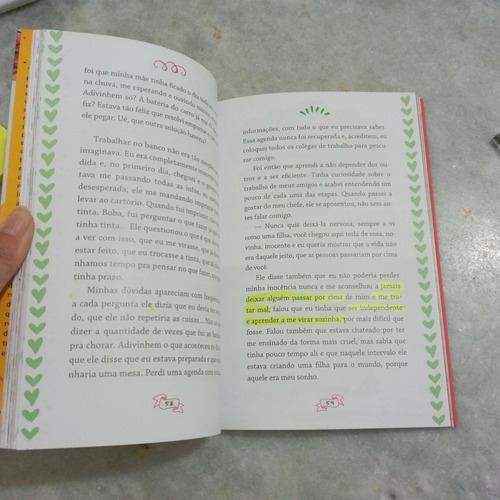 foi que minha mãe tinha ficado o dia todo
na chuva, me esperando e ouvindo
Adivinhem só? A bateria do carro já
fiz? Estava tão feliz que resolvi empurrar
ele pegar. Ué, que outra solução haveria?
Trabalhar no banco não era tão
imaginava. Eu era completamente
dida e, no primeiro dia, cheguei e o
tava me passando todas as infos, eu
desesperada, ele me mandando imprimir
levar ao cartório. Quando fui imprimir,
tinta. Boba, fui perguntar o que fazer
tinha tinta... Ele questionou o que é que
a ver com isso, que eu me virasse, que já
estar feito, que eu trocasse a tinta, que
nhamos tempo pra pensar no que fazer,
tinha prazo.
Minhas dúvidas apareciam com
a cada pergunta ele dizia que eu devia ter
do, que ele não repetiria as coisas... Não
dizer a quantidade de vezes que fui ao
pra chorar. Adivinhem o que aconteceu no
que ele disse que eu estava preparada e que
nharia uma mesa. Perdi uma agenda com
58
informações, com tudo o que eu precisava saber.
Essa agenda nunca foi recuperada e, acreditem, eu
coloquei todos os colegas de trabalho para procu-
rar comigo.
Foi então que aprendi a não depender dos ou-
tros e a ser eficiente. Tinha curiosidade sobre o
trabalho de meus amigos e acabei entendendo um
pouco de cada uma das etapas. Quando passo a
gostar do meu chefe, ele se aposentou, não sem an-
tes falar comigo.
— Nunca quis deixá-la nervosa, sempre a vi
como uma filha, você chegou aqui toda de rosa, no-
vinha, inocente e eu queria mostrar que a vida não
era daquele jeito, que as pessoas passariam por cima
de você.
Ele disse também que eu não poderia perder
minha inocência nunca e me aconselhou a jamais
deixar alguém passar por cima de mim e me tra-
tar mal, falou que eu tinha que ser independente
e aprender a me virar sozinha, por mais difícil que
fosse. Falou também que estava chateado por ter
me ensinado da forma mais cruel, mas sabia que
tinha pouco tempo ali e que naquele intervalo ele
estava criando uma filha para o mundo, porque
aquele era meu sonho.
59